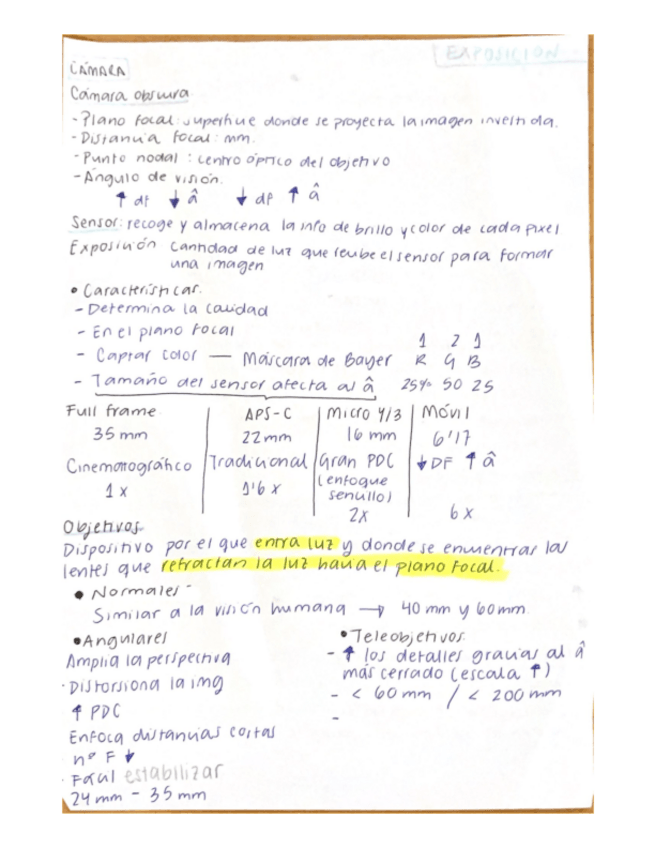 EXPOSICIÓN
CÁMARA
Cámara obscura
- Plano focal: superficie donde se proyecta la imagen invertida.
- Distancia focal: mm.
- Punto nodal: centro óptico del objetivo
- Ángulo de visión.
↑ df ↓ â ↓ df ↑ â
Sensor: recoge y almacena la info de brillo y color de cada pixel
Exposición cantidad de luz que recibe el sensor para formar
una imagen
• Características.
- Determina la calidad
- En el plano focal
1 2 1
- Captar color — Máscara de Bayer R G B
- Tamaño del sensor afecta al â 25% 50 25
Full frame APS-C Micro 4/3 Móvil
35 mm 22 mm 16 mm 6'17
Cinematográfico Tradicional Gran PDC ↓ DF ↑ â
1 x 1'6 x (enfoque
sencillo)
2x 6 x
Objetivos.
Dispositivo por el que entra luz y donde se encuentras las
lentes que refractan la luz hacia el plano focal.
• Normales
Similar a la visión humana → 40 mm y 60 mm.
• Angulares
Amplia la perspectiva
· Distorsiona la img
↑ PDC
Enfoca distancias cortas
nº F ↓
· Fácil estabilizar
24 mm - 35 mm
• Teleobjetivos.
- ↑ los detalles gracias al â
más cerrado (escala ↑)
- < 60 mm / < 200 mm
-